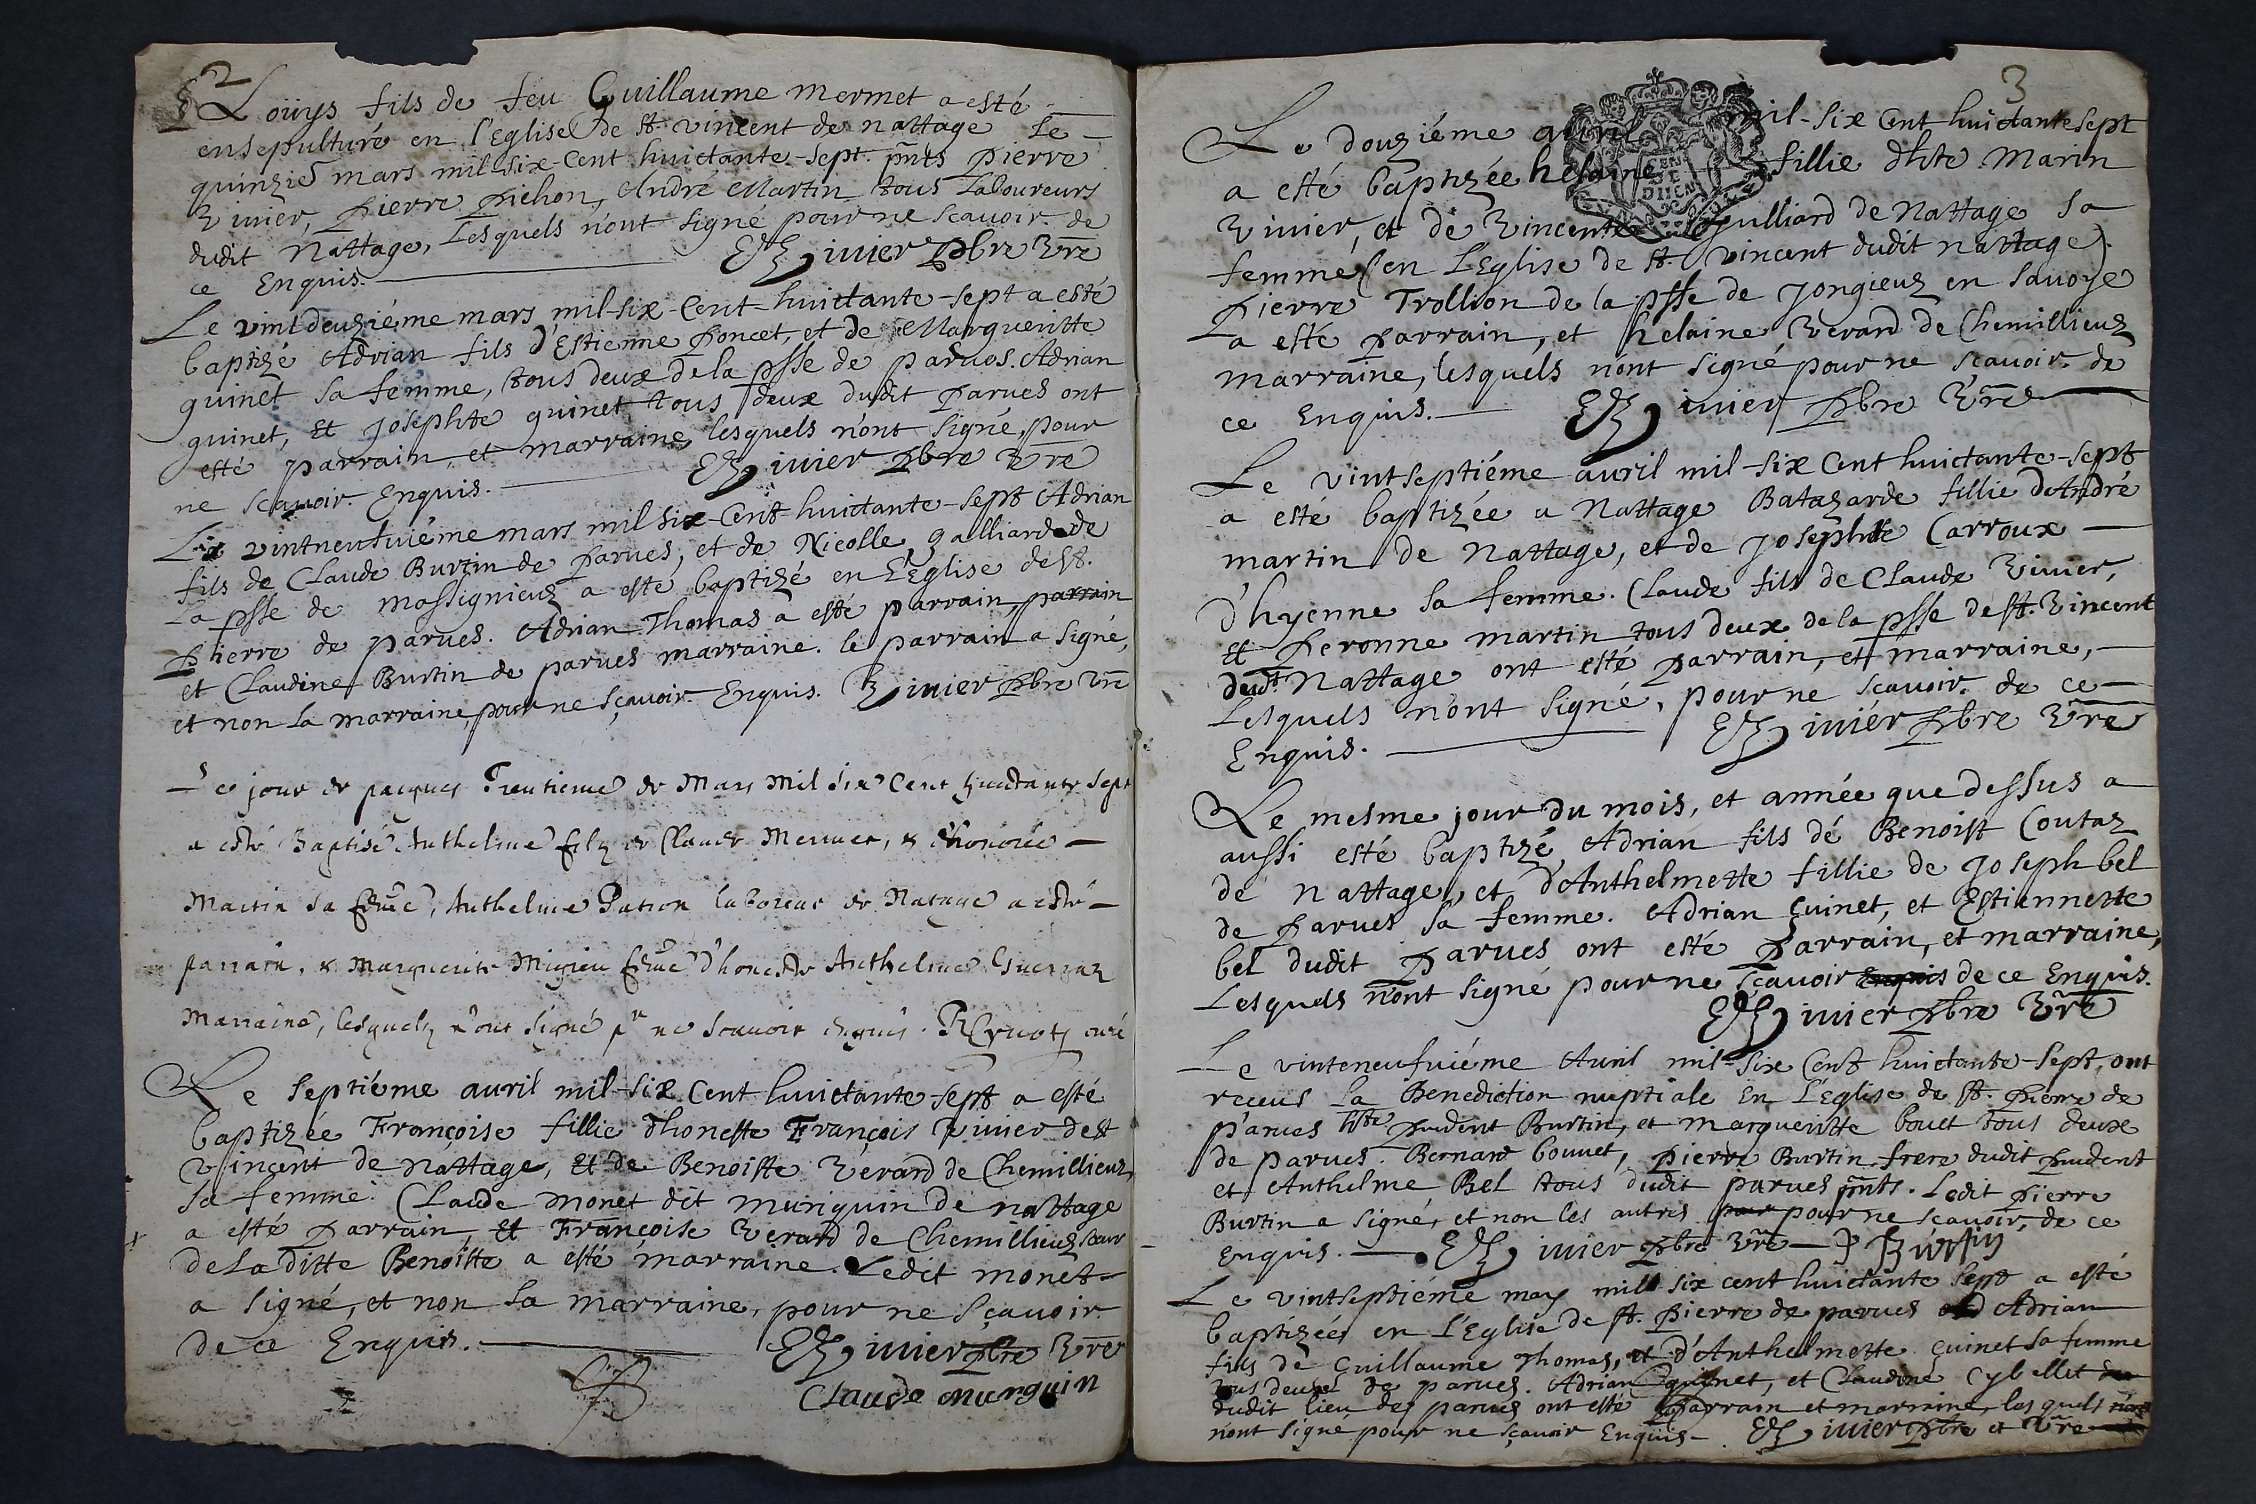 2
Loüys fils de feu Guillaume mermet a esté
ensepulturé en l'Eglise de st. vincent de nattage Le
quinzie mars mil six-cent huictante-sept. pñts pierre
Vivier, pierre pichon, André Martin tous Laboureurs
dudit Nattage, Lesquels n'ont signé pour ne scavoir de
ce Enquis. Vivier pbre Vre
Le vint deuziéme mars mil-six-Cent-huictante-sept a esté
baptizé Adrian fils d'Estienne poncet, et de Margueritte
guinet sa femme, tous deux de la psse de parves. Adrian
guinet, Et Josephte guinet tous deux dudit parves ont
esté parrain, et marraine, lesquels n'ont signé, pour
ne scavoir Enquis. Vivier pbre Vre
Le vintneufvième mars mil six-Cent huictante-sept Adrian
fils de Claude Burtin de parves, et de Nicolle galliard de
La psse de massignieuz a esté baptizé en L'Eglise de st.
pierre de parves. Adrian Thomas a esté parrain, parrain
et Claudine Burtin de parves marraine. le parrain a signé,
et non la marraine, pour ne sçavoir Enquis. Vivier pbre Vre
Le jour de pasques Trentieme de Mars Mil Six Cent huictante sept
a esté Baptisé Anthelme filz de Claude Mermet, & Honorée
Martin sa feme, Anthelme Pation laboreur de Natage a esté
parrain, & Marguerite Migieu feme d'honeste Anthelme
Marraine, lesquelz n'ont signé pr ne scavoir enquis. curé
Le septiéme avril mil-six Cent huictante-sept a esté
baptizée Françoise fillie d'honeste François Vivier de st
Vincent de nattage, Et de Benoiste Verard de Chemillieuz,
sa femme. Claude monet dit murquin de nattage
a esté parrain, Et Françoise Verard de Chemillieuz sœur
de La ditte Benoitte a esté marraine. Ledit monet
a signé, et non la marraine, pour ne sçavoir
de ce Enquis. Vivier pbre Vre
Claude murquin
3
Le douziéme avril mil-six Cent huictante sept
a esté baptizée helaine fillie d'hte Marin
Vivier, et de Vincente Guilliard de Nattage sa
femme (en L'Eglise de st. vincent dudit nattage).
pierre Trollion de la psse de jongieuz en savoye
a esté parrain, et helaine Verard de Chemillieuz
marraine, lesquels n'ont signé pour ne scavoir de
ce Enquis. Vivier pbre Vre
Le vintseptiéme avril mil-six Cent huictante-sept
a esté baptizée a Nattage Batazarde fillie d'André
martin de Nattage, et de josephte Carroux
d'hyenne sa femme. Claude fils de Claude Vivier,
Et peronne martin tous deux de la psse de st. Vincent
dudt Nattage ont esté parrain, et marraine,
Lesquels n'ont signé, pour ne scavoir de ce
Enquis. Vivier pbre Vre
Le mesme jour du mois, et année que dessus a
aussi esté baptizé Adrian fils de Benoist Coutaz
de nattage, et d'Anthelmette fillie de joseph bel
de parves sa femme. Adrian guinet, et Estiennette
bel dudit parves ont esté parrain, et marraine,
Lesquels n'ont signé pour ne scavoir Enquis de ce Enquis.
Vivier pbre Vre
Le vinteneufviéme Avril mil-six Cent huictante-sept, ont
receus la Benediction nuptiale En L'Eglise de st. pierre de
parves hte prudent Burtin, et margueritte bouet tous deux
de parves. Bernard bouvet, pierre Burtin frere dudit prudent
et Anthelme Bel tous dudit parves pñts. Ledit pierre
Burtin a signé, et non les autres pour pour ne scavoir, de ce
Enquis. Vivier pbre Vre P Burtin
Le vintseptiéme may mil six cent huictante sept a esté
baptizée en L'Eglise de st. pierre de parves Adrian
fils de Guillaume Thomas, et d'Anthelmette guinet sa femme
tous deux de parves. Adrian guinet, et Claudine Cybellet
dudit lieu de parves ont esté parrain et marraine, lesquels n'ont
n'ont signé pour ne sçavoir Enquis. Vivier pbre et Vre